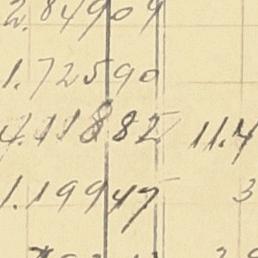 2.84909
1.72590
4.11882 11.4
1.19947 3